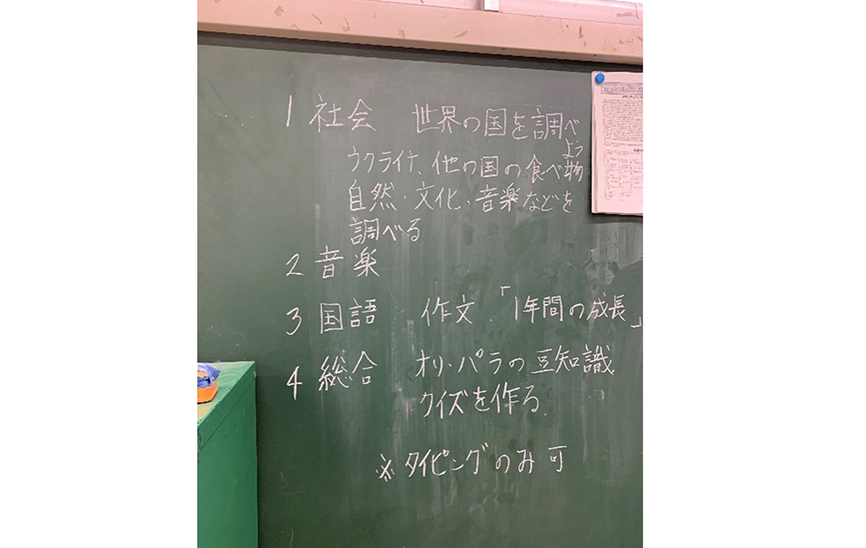 1 社会 世界の国を調べよう
ウクライナ、他の国の食べ物
自然・文化・音楽などを
調べる
2 音楽
3 国語 作文「1年間の成長」
4 総合 オリ・パラの豆知識
クイズを作る.
※タイピングのみ可